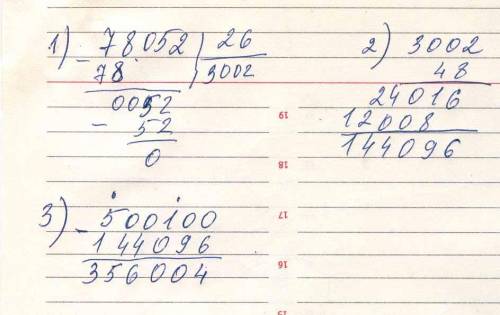 1) - 78052 | 26
78 3002
0052
- 52
0
2) 3002
48
24016
12008
144096
3) - 500100
144096
356004
19
18
17
16